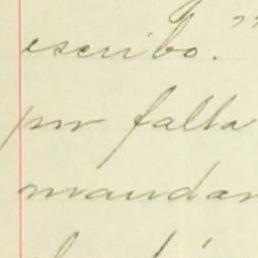 escribo."
por falta
mandar